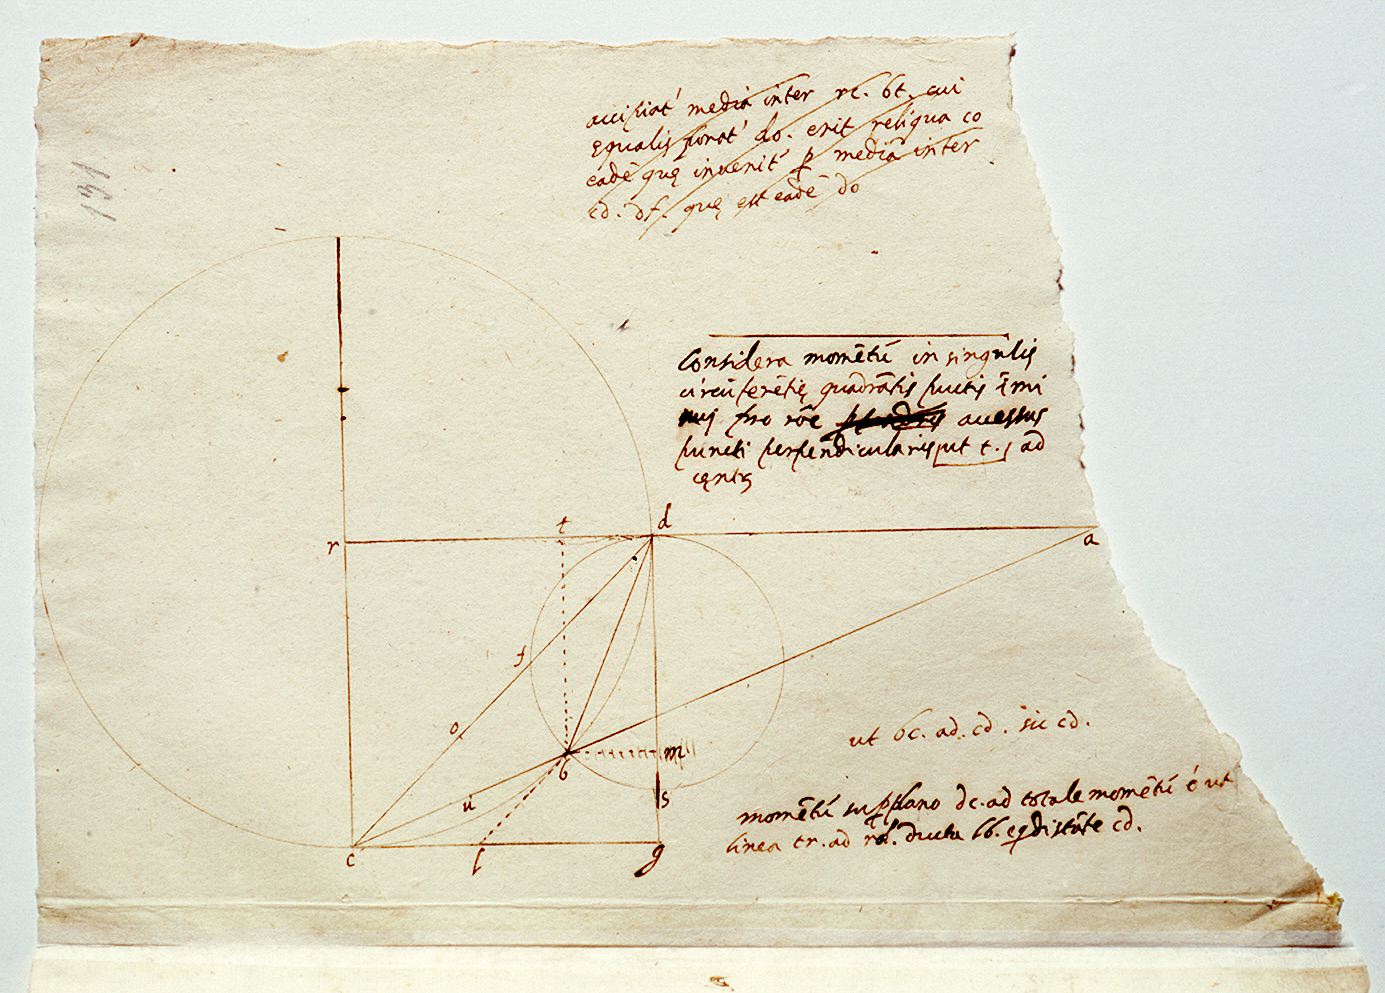 accipiat' media inter rc. bt. cui
ęqualis ponat' do. erit reliqua co
cadē quę invenit' p mediā inter
cd. df. quę est eadē do
131
Considera momētū in singulis
circūferētię quadrātis puctis īmi
nui pro rōe accessus
puncti perpendicularis ut t. ad
cęntrū
t
d
r
a
f
o
m
b
u
s
c
l
g
ut bc. ad. cd. sic cd.
momētū sup plano dc. ad totale momētū ē ut
linea tr. ad rd. ducta lb. eqdistāte cd.